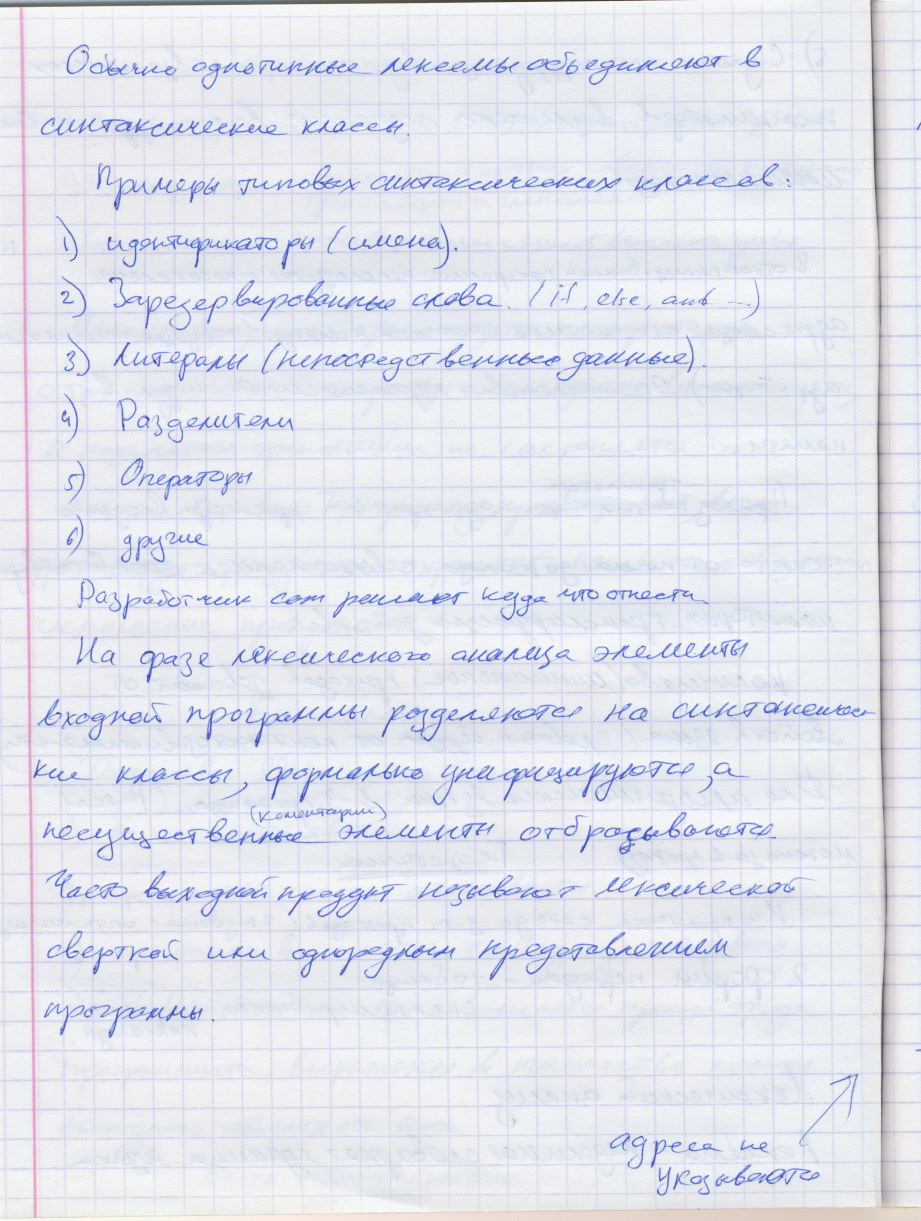 Обычно однотипные лексемы объединяют в
синтаксические классы.
Примеры типовых синтаксических классов:
1) идентификаторы (имена).
2) Зарезервированные слова. (if, else, and ...)
3) Литералы (непосредственные данные).
4) Разделители
5) Операторы
6) другие
Разработчик сам решает куда что отнести.
На фазе лексического анализа элементы
входной программы разделяются на синтаксичес-
кие классы, формально унифицируются, а
(коментарии)
несущественные элементы отбрасываются.
Часто выходной продукт называют лексической
сверткой или однородным представлением
программы.
адреса не
указываются